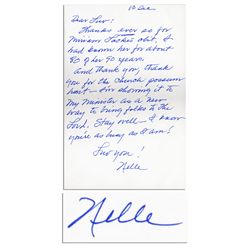 10 Dec
Dear Luv:
Thanks ever so for
Miriam Locke's obit. I
had known her for about
80 of her 90 years.
And thank you, thank
you for the Church possum
hunt — I'm showing it to
my Minister as a new
way to bring folks to the
Lord. Stay well — I know
you're as busy as I am!
Luv you!
Nelle
Nelle